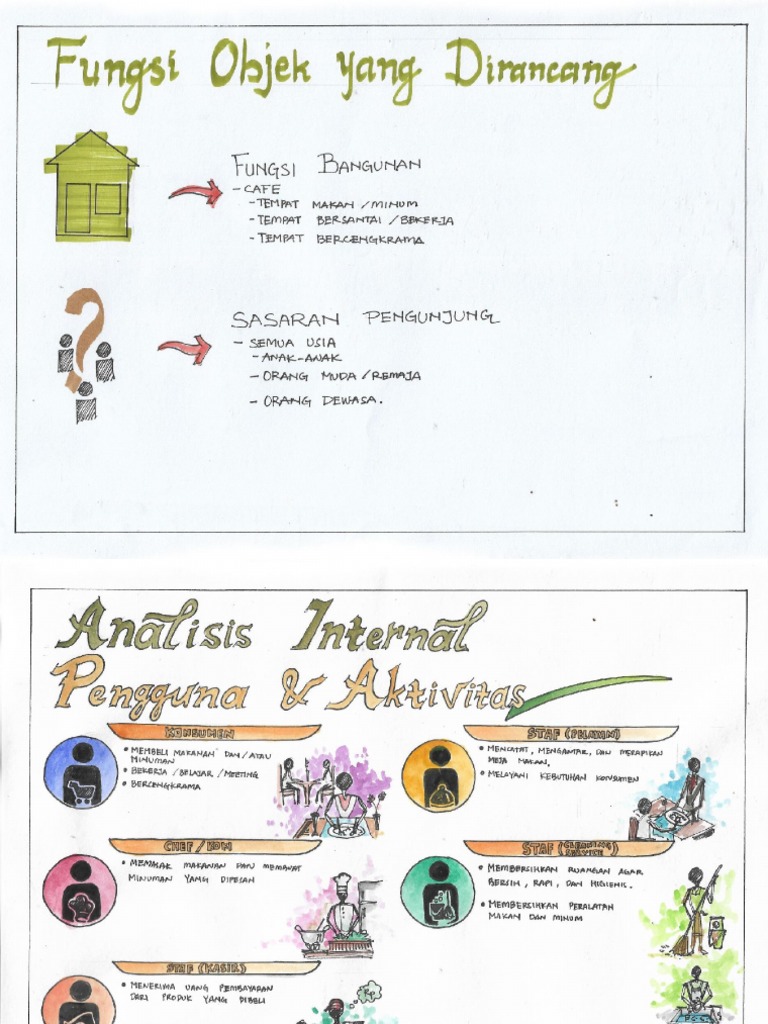 Fungsi Objek yang Dirancang
FUNGSI BANGUNAN
- CAFE
- TEMPAT MAKAN / MINUM
- TEMPAT BERSANTAI / BEKERJA
- TEMPAT BERCENGKRAMA
SASARAN PENGUNJUNG
- SEMUA USIA
- ANAK-ANAK
- ORANG MUDA / REMAJA
- ORANG DEWASA.
Analisis Internal
Pengguna & Aktivitas
KONSUMEN
• MEMBELI MAKANAN DAN / ATAU
MINUMAN
• BEKERJA / BELAJAR / MEETING
• BERCENGKRAMA
STAF (PELAYAN)
• MENCATAT, MENGANTAR, DAN MERAPIKAN
MEJA MAKAN.
• MELAYANI KEBUTUHAN KONSUMEN
CHEF /
• MEMASAK MAKANAN DAN MEMBUAT
MINUMAN YANG DIPESAN
STAF (CLEANING SERVICE)
• MEMBERSIHKAN RUANGAN AGAR
BERSIH, RAPI, DAN HIGIENIS.
• MEMBERSIHKAN PERALATAN
MAKAN DAN MINUM
STAF (KASIR)
• MENERIMA UANG PEMBAYARAN
DARI PRODUK YANG DIBELI
Rp